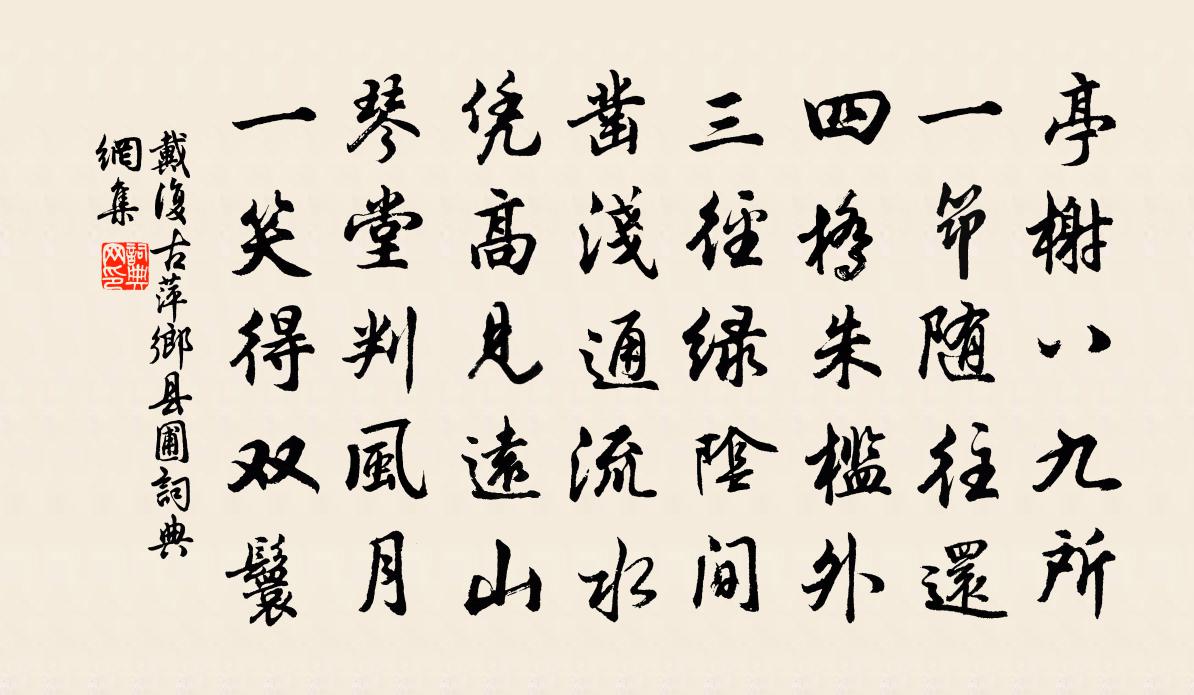 亭榭八九所
一笻随往還
四橋朱檻外
三徑緑陰間
鑿淺通流水
凭高見遠山
琴堂判風月
一笑得双鬟
戴復古萍鄉县圃詞典
網集
詞典
网印